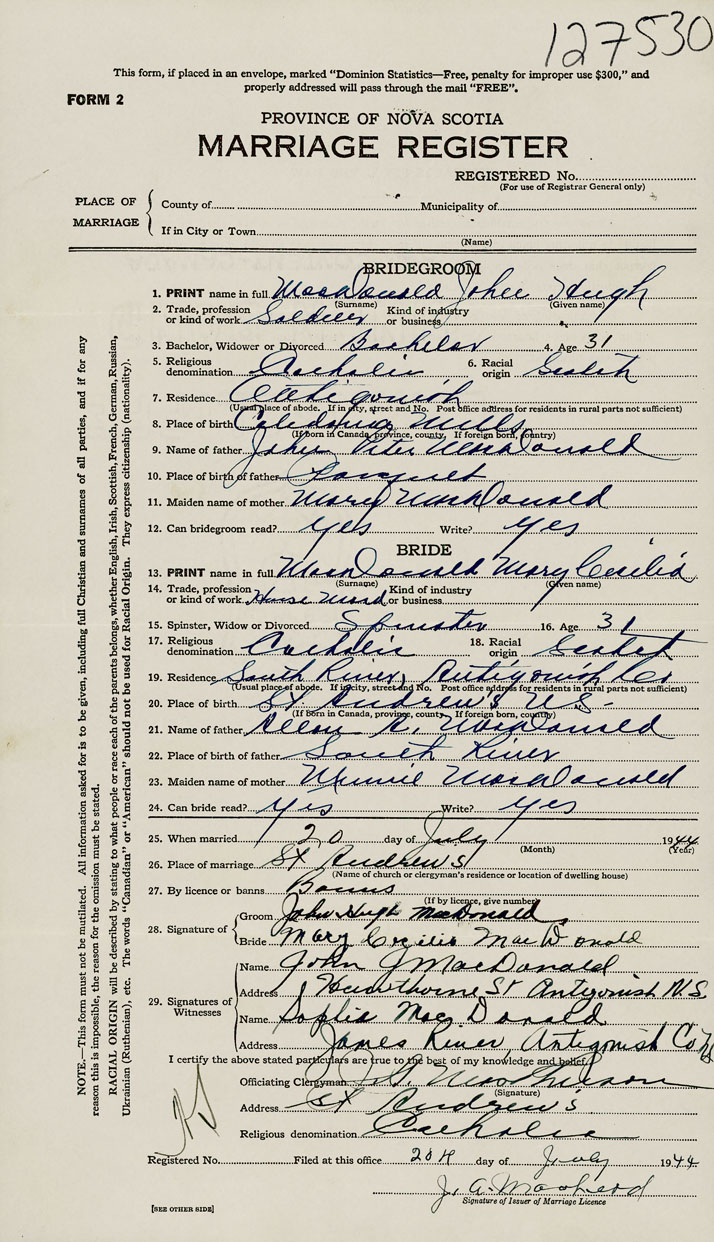 127530
This form, if placed in an envelope, marked "Dominion Statistics—Free, penalty for improper use $300," and
properly addressed will pass through the mail "FREE".
FORM 2
PROVINCE OF NOVA SCOTIA
MARRIAGE REGISTER
REGISTERED No.
(For use of Registrar General only)
PLACE OF MARRIAGE
County of Municipality of
If in City or Town
(Name)
BRIDEGROOM
1. PRINT name in full MacDonald John Hugh
(Surname) (Given name)
2. Trade, profession or kind of work Soldier Kind of industry or business
3. Bachelor, Widower or Divorced Bachelor 4. Age 31
5. Religious denomination Catholic 6. Racial origin Scotch
7. Residence Antigonish
(Usual place of abode. If in city, street and No. Post office address for residents in rural parts not sufficient)
8. Place of birth Caledonia Mills
(If born in Canada, province, county. If foreign born, country)
9. Name of father John Peter MacDonald
10. Place of birth of father
11. Maiden name of mother Mary MacDonald
12. Can bridegroom read? yes Write? yes
BRIDE
13. PRINT name in full MacDonald Mary Cecilia
(Surname) (Given name)
14. Trade, profession or kind of work House Maid Kind of industry or business
15. Spinster, Widow or Divorced Spinster 16. Age 31
17. Religious denomination Catholic 18. Racial origin Scotch
19. Residence South River, Antigonish Co
(Usual place of abode. If in city, street and No. Post office address for residents in rural parts not sufficient)
20. Place of birth St Andrew's N.S.
(If born in Canada, province, county. If foreign born, country)
21. Name of father MacDonald
22. Place of birth of father South River
23. Maiden name of mother Minnie MacDonald
24. Can bride read? yes Write? yes
25. When married 20 day of July 1944
(Month) (Year)
26. Place of marriage St Andrew's
(Name of church or clergyman's residence or location of dwelling house)
27. By licence or banns Banns
(If by licence, give number)
28. Signature of
Groom John Hugh MacDonald
Bride Mary Cecilia MacDonald
29. Signatures of Witnesses
Name John J MacDonald
Address Hawthorne St Antigonish N.S.
Name Sophia MacDonald
Address James River Antigonish Co NS
I certify the above stated particulars are true to the best of my knowledge and belief.
Officiating Clergyman
(Signature)
Address St Andrew's
Religious denomination Catholic
Registered No. Filed at this office 20th day of July 1944
J. A.
Signature of Issuer of Marriage Licence
[SEE OTHER SIDE]
NOTE.—This form must not be mutilated. All information asked for is to be given, including full Christian and surnames of all parties, and if for any
reason this is impossible, the reason for the omission must be stated.
RACIAL ORIGIN will be described by stating to what people or race each of the parents belongs, whether English, Irish, Scottish, French, German, Russian,
Ukrainian (Ruthenian), etc. The words "Canadian" or "American" should not be used for Racial Origin. They express citizenship (nationality).